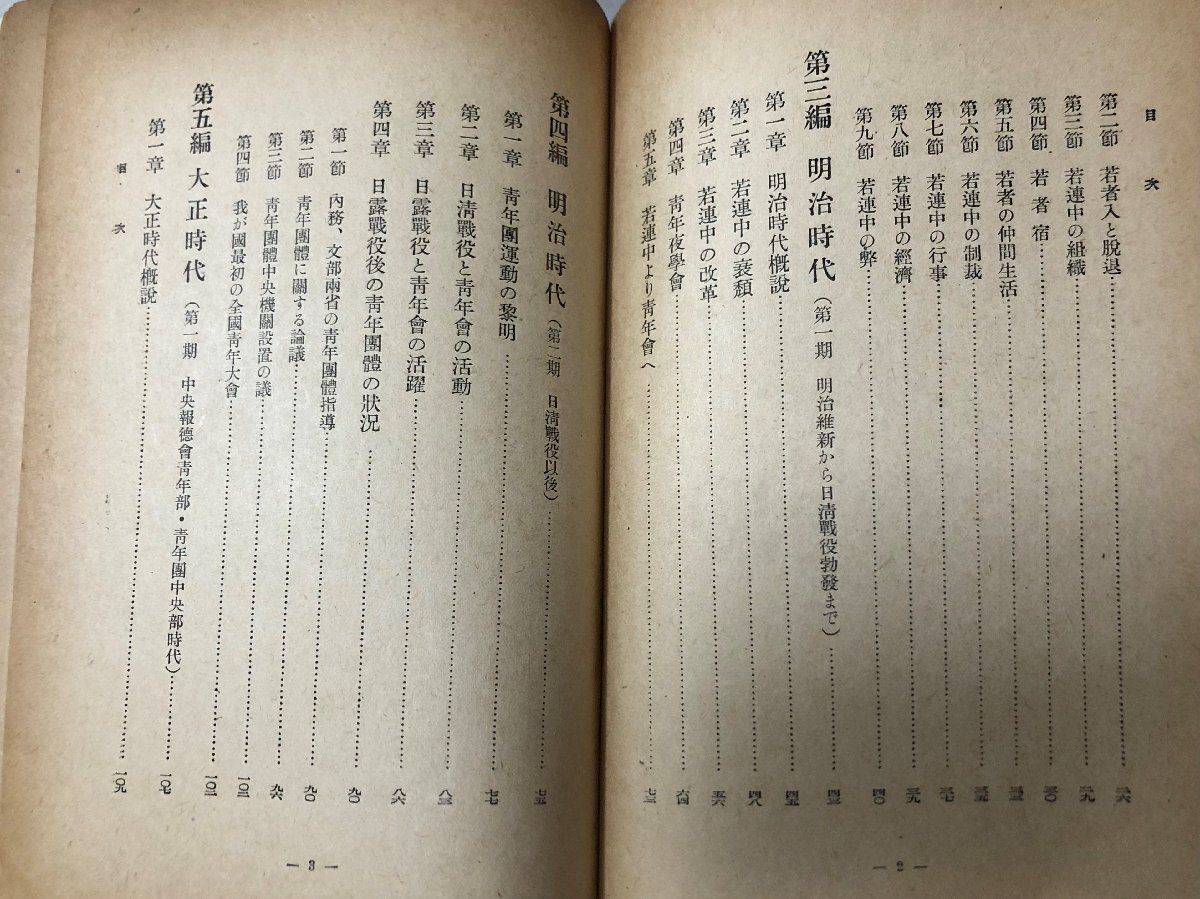 目次
第二節 若者入と脱退…二六
第三節 若連中の組織…二九
第四節 若者宿…三〇
第五節 若者の仲間生活…三三
第六節 若連中の制裁…三五
第七節 若連中の行事…三七
第八節 若連中の經濟…三九
第九節 若連中の弊…四〇
第三編 明治時代（第一期 明治維新から日淸戰役勃發まで）…四三
第一章 明治時代槪說…四五
第二章 若連中の衰頽…四八
第三章 若連中の改革…五六
第四章 靑年夜學會…六四
第五章 若連中より靑年會へ…七三
— 2 —
第四編 明治時代（第二期 日淸戰役以後）…七五
第一章 靑年團運動の黎明…七七
第二章 日淸戰役と靑年會の活動…八三
第三章 日露戰役と靑年會の活躍…八六
第四章 日露戰役後の靑年團體の狀況…九〇
第一節 內務、文部兩省の靑年團體指導…九〇
第二節 靑年團體に關する論議…九六
第三節 靑年團體中央機關設置の議…一〇二
第四節 我が國最初の全國靑年大會…一〇三
第五編 大正時代（第一期 中央報德會靑年部・靑年團中央部時代）…一〇七
第一章 大正時代槪說…一〇九
目次
— 3 —